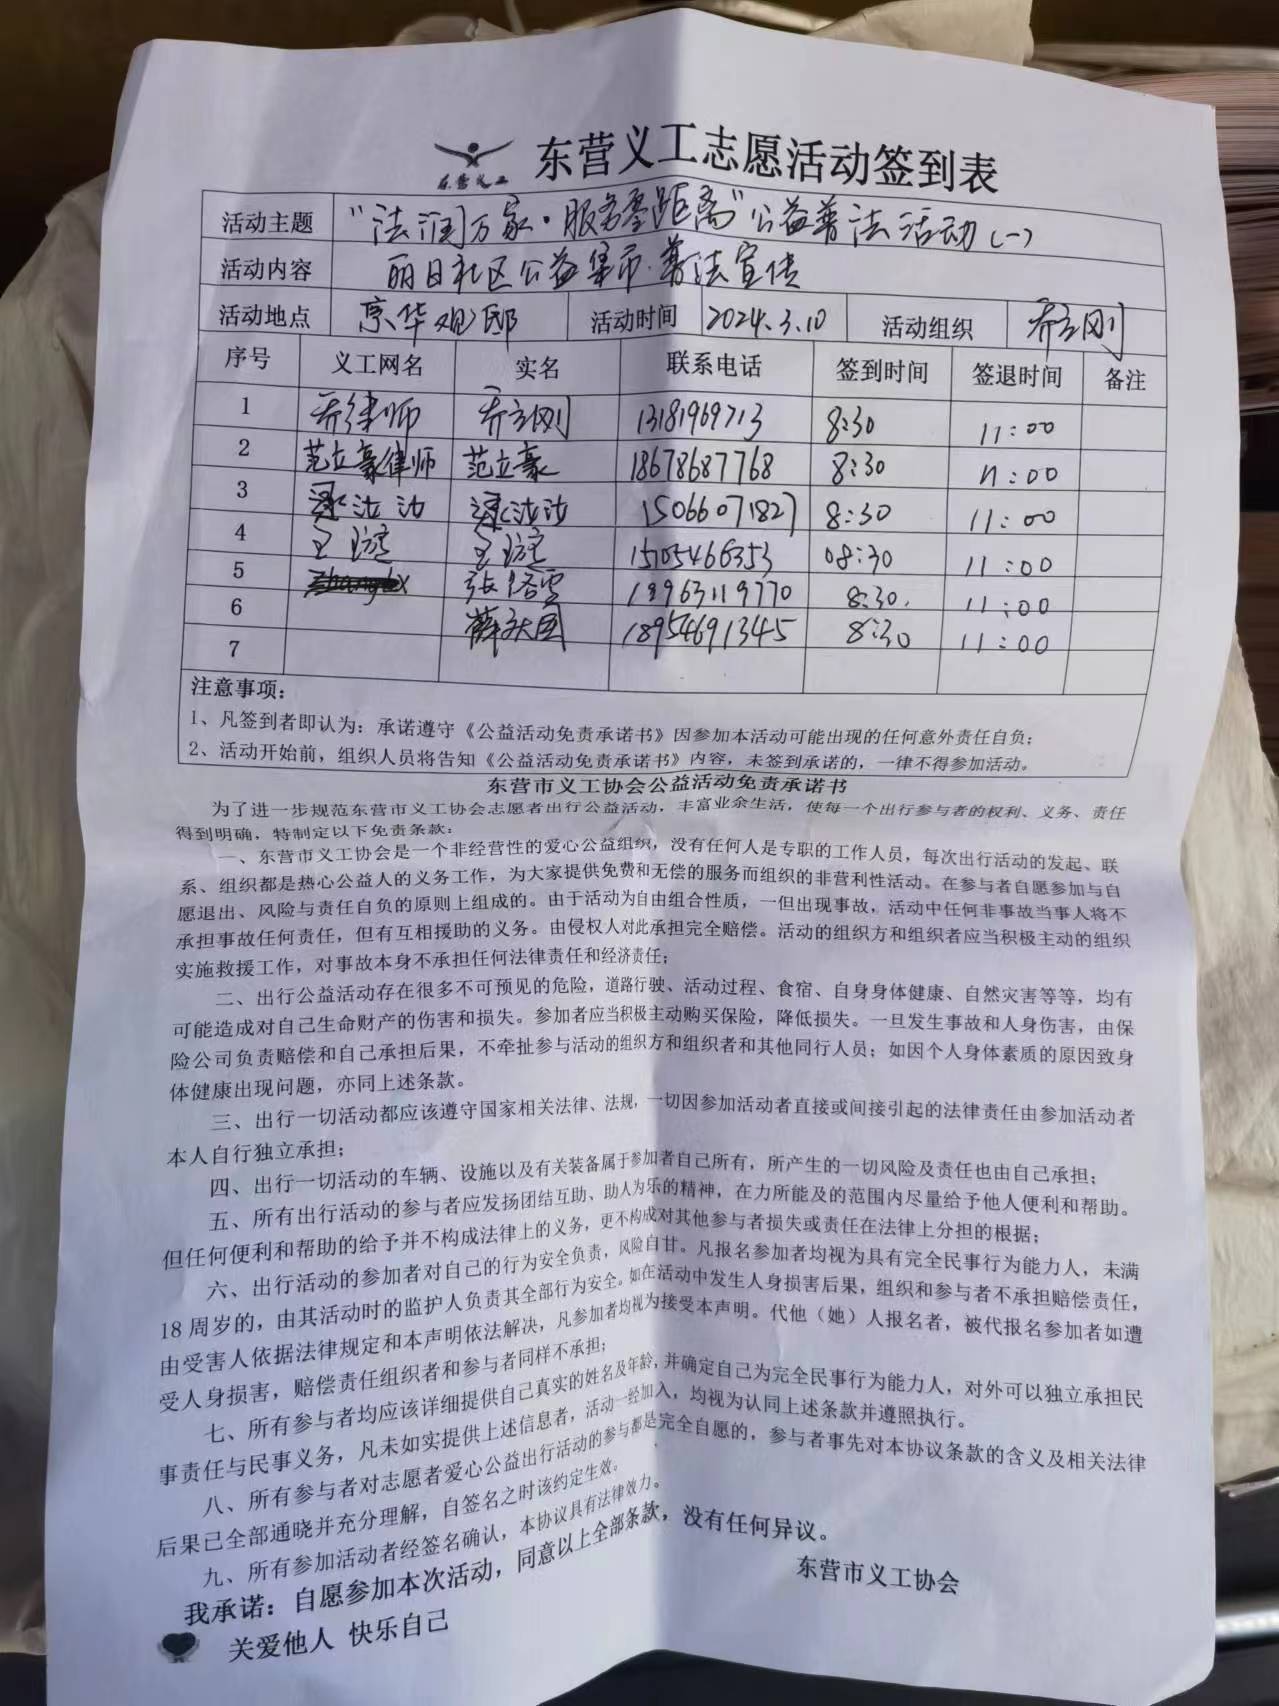 东营义工
东营义工志愿活动签到表
活动主题 “法润万家·服务零距离”公益普法活动(一)
活动内容 丽日社区公益集市.普法宣传
活动地点 京华观邸 活动时间 2024.3.10 活动组织 乔立刚
序号 义工网名 实名 联系电话 签到时间 签退时间 备注
1 乔律师 乔立刚 13181969713 8:30 11:00
2 范立豪律师 范立豪 18678687768 8:30 11:00
3 15066071827 8:30 11:00
4 王璇 王璇 15105466353 08:30 11:00
5 8:30. 11:00
6 18954691345 8:30 11:00
7
注意事项：
1、凡签到者即认为：承诺遵守《公益活动免责承诺书》因参加本活动可能出现的任何意外责任自负；
2、活动开始前，组织人员将告知《公益活动免责承诺书》内容，未签到承诺的，一律不得参加活动。
东营市义工协会公益活动免责承诺书
为了进一步规范东营市义工协会志愿者出行公益活动，丰富业余生活，使每一个出行参与者的权利、义务、责任
得到明确，特制定以下免责条款：
一、东营市义工协会是一个非经营性的爱心公益组织，没有任何人是专职的工作人员，每次出行活动的发起、联
系、组织都是热心公益人的义务工作，为大家提供免费和无偿的服务而组织的非营利性活动。在参与者自愿参加与自
愿退出、风险与责任自负的原则上组成的。由于活动为自由组合性质，一但出现事故，活动中任何非事故当事人将不
承担事故任何责任，但有互相援助的义务。由侵权人对此承担完全赔偿。活动的组织方和组织者应当积极主动的组织
实施救援工作，对事故本身不承担任何法律责任和经济责任；
二、出行公益活动存在很多不可预见的危险，道路行驶、活动过程、食宿、自身身体健康、自然灾害等等，均有
可能造成对自己生命财产的伤害和损失。参加者应当积极主动购买保险，降低损失。一旦发生事故和人身伤害，由保
险公司负责赔偿和自己承担后果，不牵扯参与活动的组织方和组织者和其他同行人员；如因个人身体素质的原因致身
体健康出现问题，亦同上述条款。
三、出行一切活动都应该遵守国家相关法律、法规，一切因参加活动者直接或间接引起的法律责任由参加活动者
本人自行独立承担；
四、出行一切活动的车辆、设施以及有关装备属于参加者自己所有，所产生的一切风险及责任也由自己承担；
五、所有出行活动的参与者应发扬团结互助、助人为乐的精神，在力所能及的范围内尽量给予他人便利和帮助。
但任何便利和帮助的给予并不构成法律上的义务，更不构成对其他参与者损失或责任在法律上分担的根据；
六、出行活动的参加者对自己的行为安全负责，风险自甘。凡报名参加者均视为具有完全民事行为能力人，未满
18周岁的，由其活动时的监护人负责其全部行为安全。如在活动中发生人身损害后果，组织和参与者不承担赔偿责任，
由受害人依据法律规定和本声明依法解决，凡参加者均视为接受本声明。代他（她）人报名者，被代报名参加者如遭
受人身损害，赔偿责任组织者和参与者同样不承担；
七、所有参与者均应该详细提供自己真实的姓名及年龄，并确定自己为完全民事行为能力人，对外可以独立承担民
事责任与民事义务，凡未如实提供上述信息者，活动一经加入，均视为认同上述条款并遵照执行。
八、所有参与者对志愿者爱心公益出行活动的参与都是完全自愿的，参与者事先对本协议条款的含义及相关法律
后果已全部通晓并充分理解，自签名之时该约定生效。
九、所有参加活动者经签名确认，本协议具有法律效力。
我承诺：自愿参加本次活动，同意以上全部条款，没有任何异议。
东营市义工协会
关爱他人 快乐自己